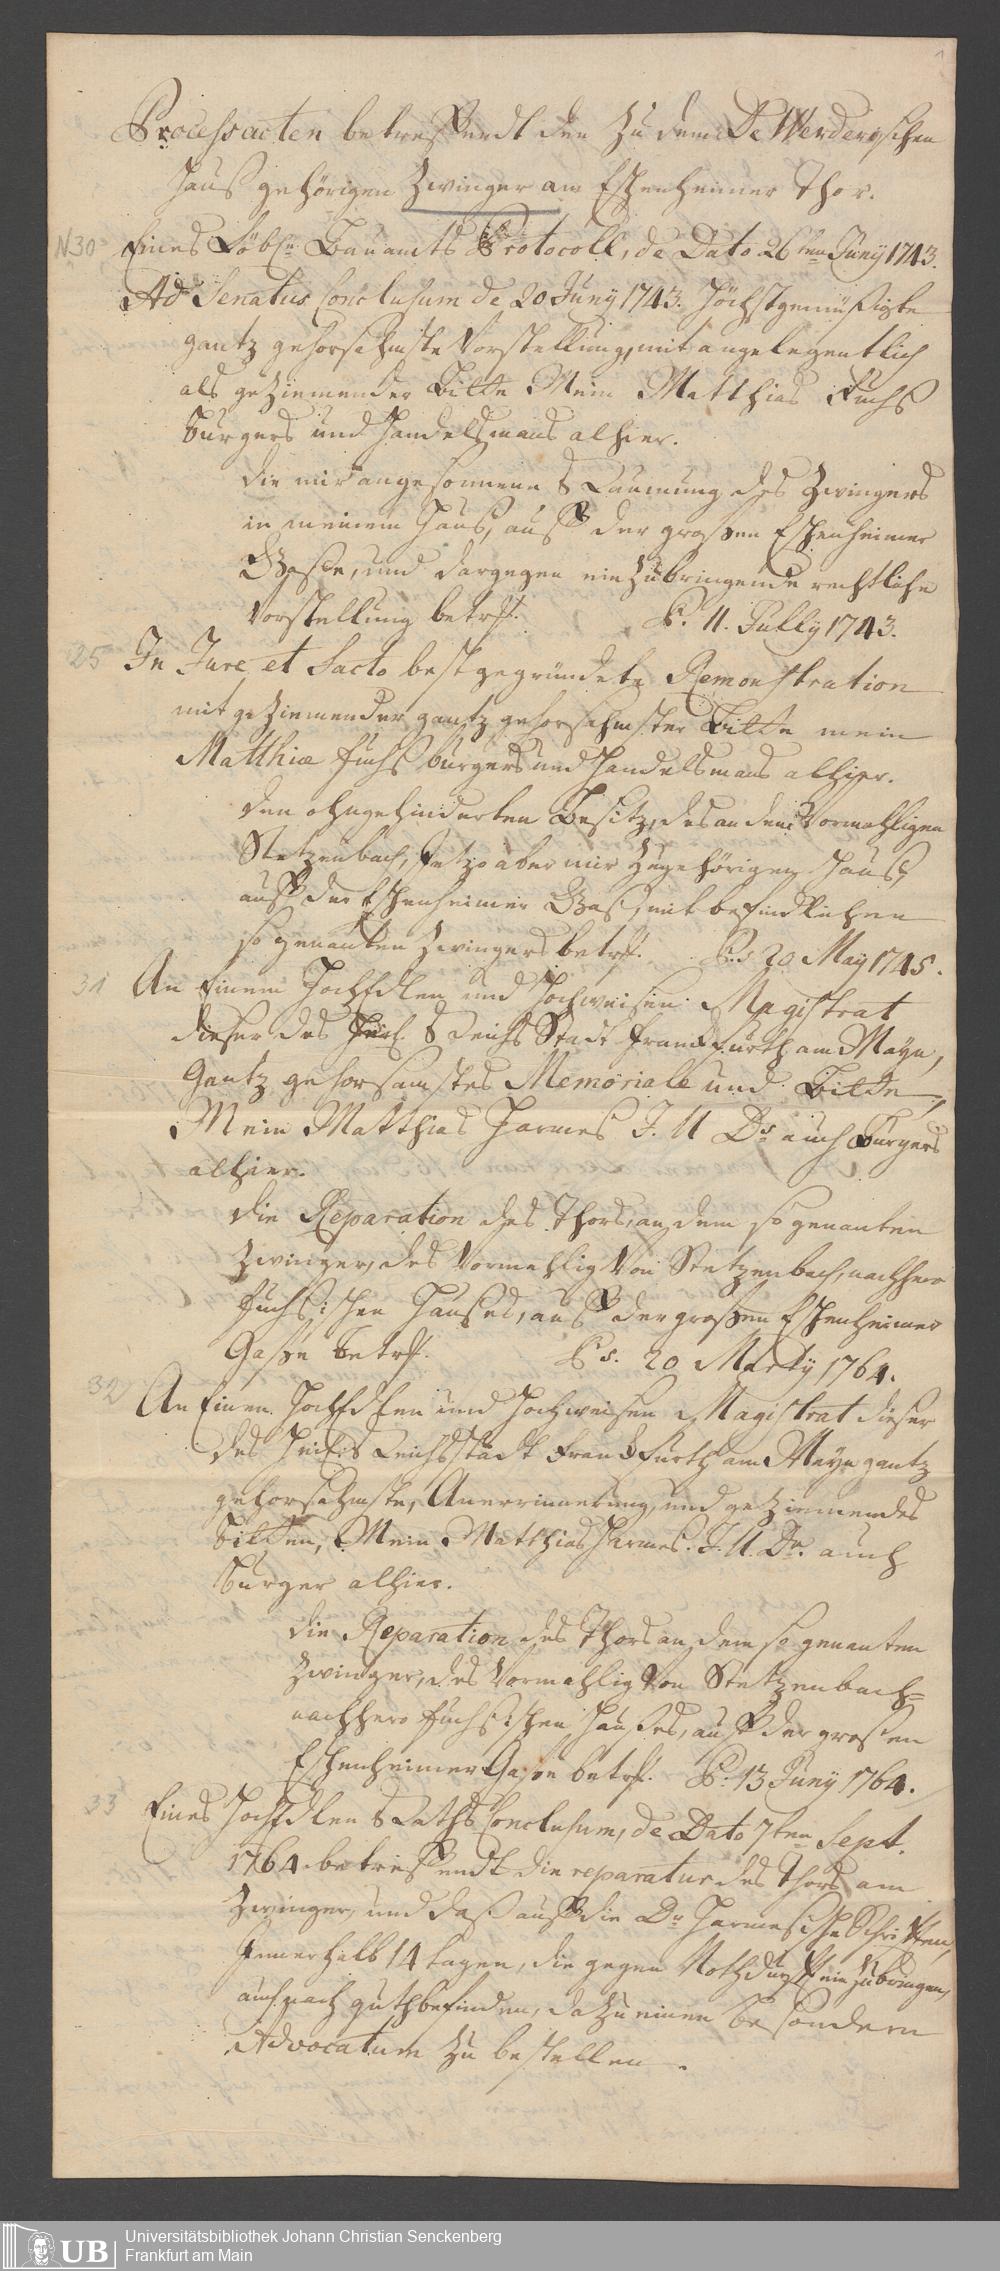 1
Processacten betreffendt den zu dem De Werderischen
Hauß gehörigen Zwinger am Eschenheimer Thor.
N 30 Eines Löbln Bauamts Protocoll, de Dato 26ten Juny 1743.
Ad Senatus Conclusum de 20 Juny 1743. Höchstgemüßigte
gantz gehorsahmste Vorstellung, mit angelegentlich
als geziemender Bitte Mein Matthias Fuchs
burgers und Handelsmans alhier.
die mir angesonnene Räumung des Zwingers
in meinem Hauß, auff der großen Eschenheimer
Gaße, und dargegen einzubringende rechtliche
Vorstellung betrf. Ps. 11. Jully 1743.
25 In Jure et facto bestgegründete Remonstration
mit geziemender gantz gehorsahmster Bitte mein
Matthiæ Fuchs burgers und Handelsmans alhier.
den ohngehinderten Besitz, des an dem Vormahligen
Stetzenbach, jetzo aber mir zugehörigen Hauß,
auff der Eschenheimer Gaß, mit befindlichen
so genanten Zwingers betrf. Ps. 20 May 1745.
31 An Einen HochEdlen und Hochweisen Magistrat
dieser des Heil. Reichs Stadt Franckfurth am Mayn,
Gantz gehorsamstes Memoriale und Bitte,
Mein Matthias Harmes J. U. Dr. auch Burgers
alhier.
die Reparation des Thors, an dem so genanten
Zwinger, des Vormahlig Von Stetzenbach, nachhero
Fuchsischen Haußes, auff der großen Eschenheimer
Gaße betrf. Ps. 20 Marty 1764.
32 An Einen HochEdlen und Hochweisen Magistrat dieser
des Heil. Reichsstadt Franckfurth am Mayn gantz
gehorsahmste, Anerrinnerung, und geziemendes
bitten, Mein Matthias Harmes. J. U. Dr. auch
burger alhier.
die Reparation des Thors an dem so genanten
Zwinger, des Vormahlig Von Stetzenbach=
nachhero Fuchsischen Haußes, auff der großen
Eschenheimer Gaßse betrf. Ps. 13 Juny 1764.
33 Eines HochEdlen Raths Conclusum, de Dato 7ten Sept.
1764. betreffendt die reparatur des Thors am
Zwinger, und daß auff die Dr Harmesische Schrifften,
Innerhalb 14 tagen, die gegen Nothdurfft einzubringen,
auch nach gutbefinden, dazu einen besondern
Advocatum zu bestellen.
UB
Universitätsbibliothek Johann Christian Senckenberg
Frankfurt am Main